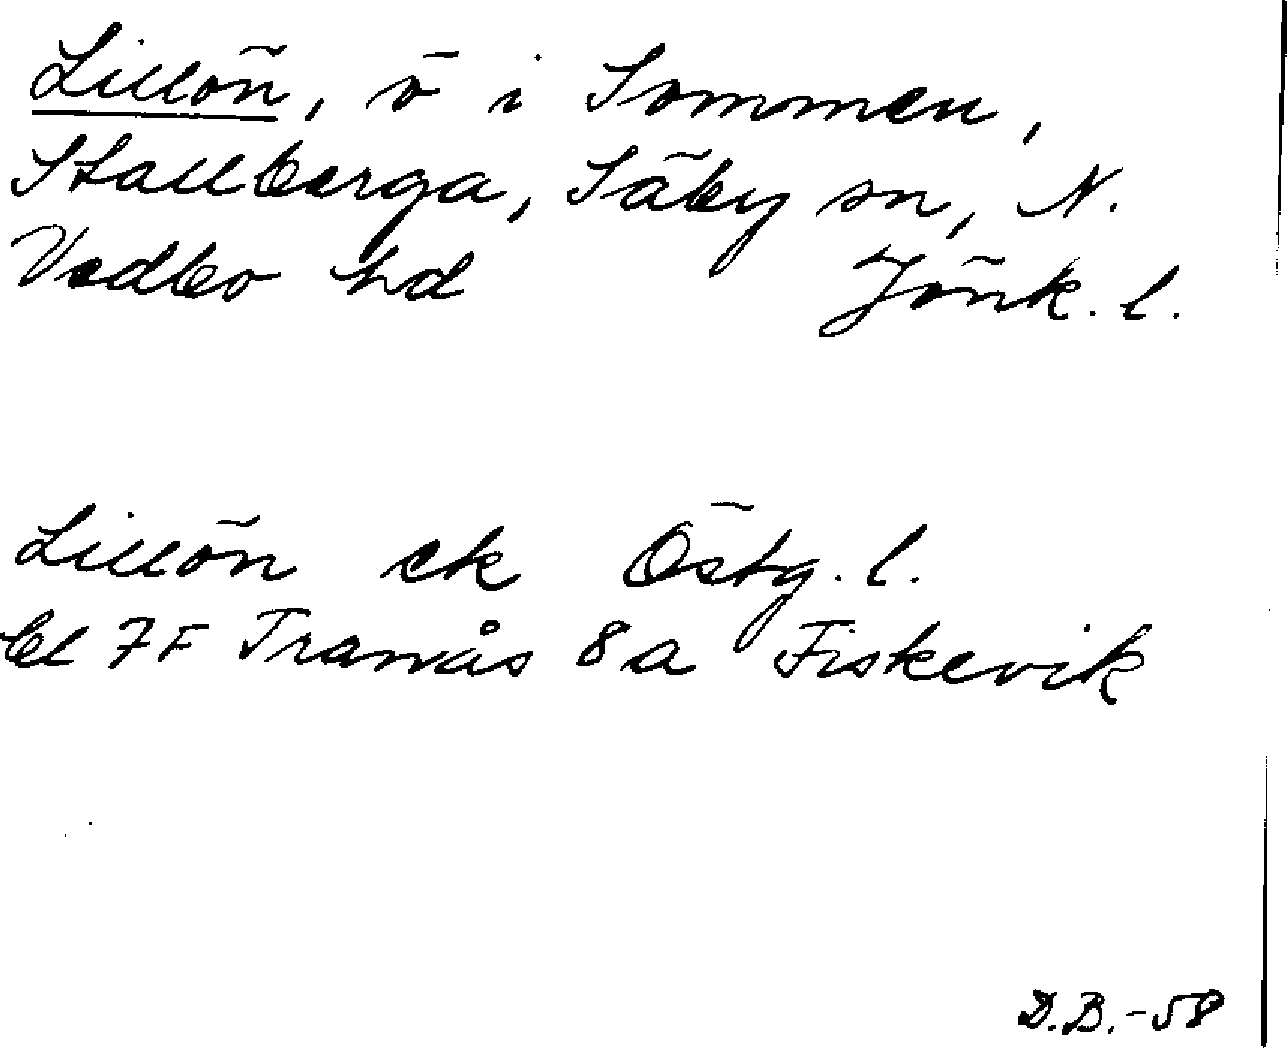 Lillön, ö i Sommen,
Stallberga, Säby sn, N.
Vedbo hd Jönk. l.
Lillön ek Östg. l.
bl 7F Tranås 8a Fiskevik
D.B.-58